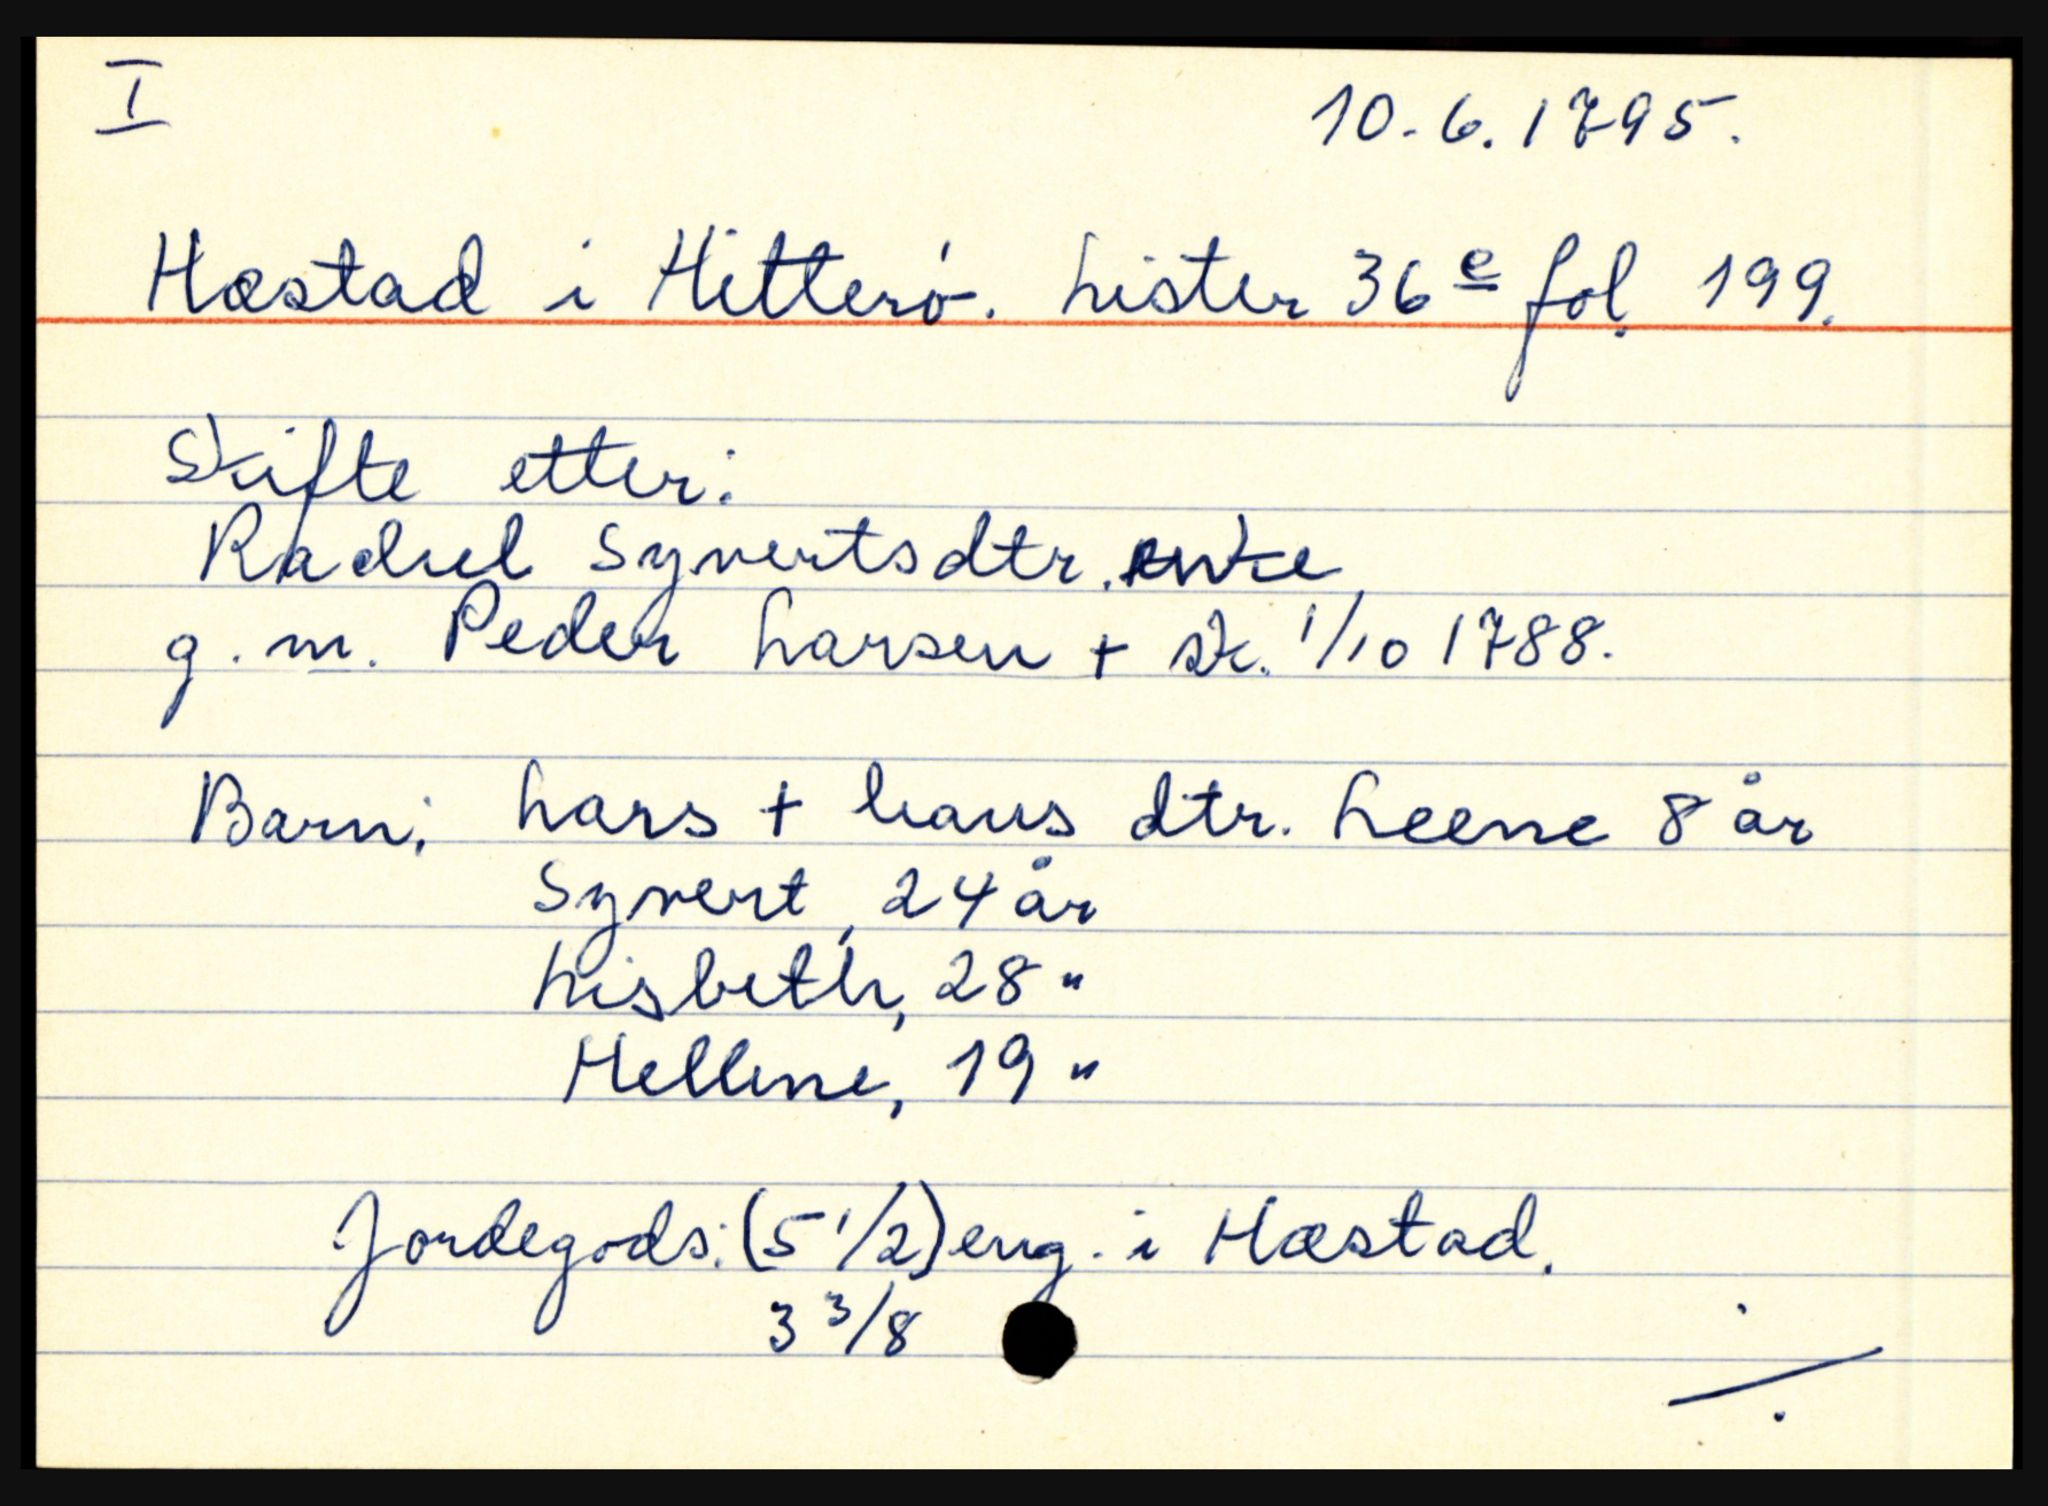 I
10.6.1795.
Hæstad i Hitterø. Lister 36 e fol. 199.
Skifte etter:
Rachel Syvertsdtr. enke
g.m. Peder Larsen + sk. 1/10 1788.
Barn: Lars + hans dtr. Leene 8 år
Syvert, 24 år
Lisbeth, 28 "
Hellene, 19 "
Jordegods: (5 1/2) eng. i Hæstad.
3 3/8